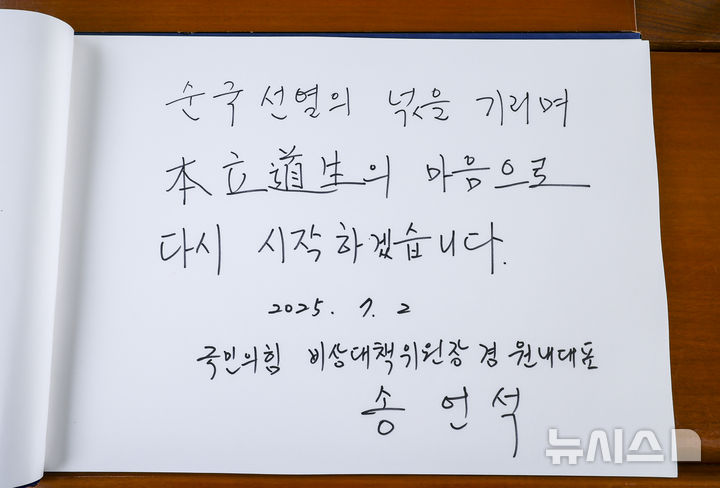 순국선열의 넋을 기리며
本立道生의 마음으로
다시 시작하겠습니다.
2025. 7. 2
국민의힘 비상대책위원장 겸 원내대표
송언석
뉴시스